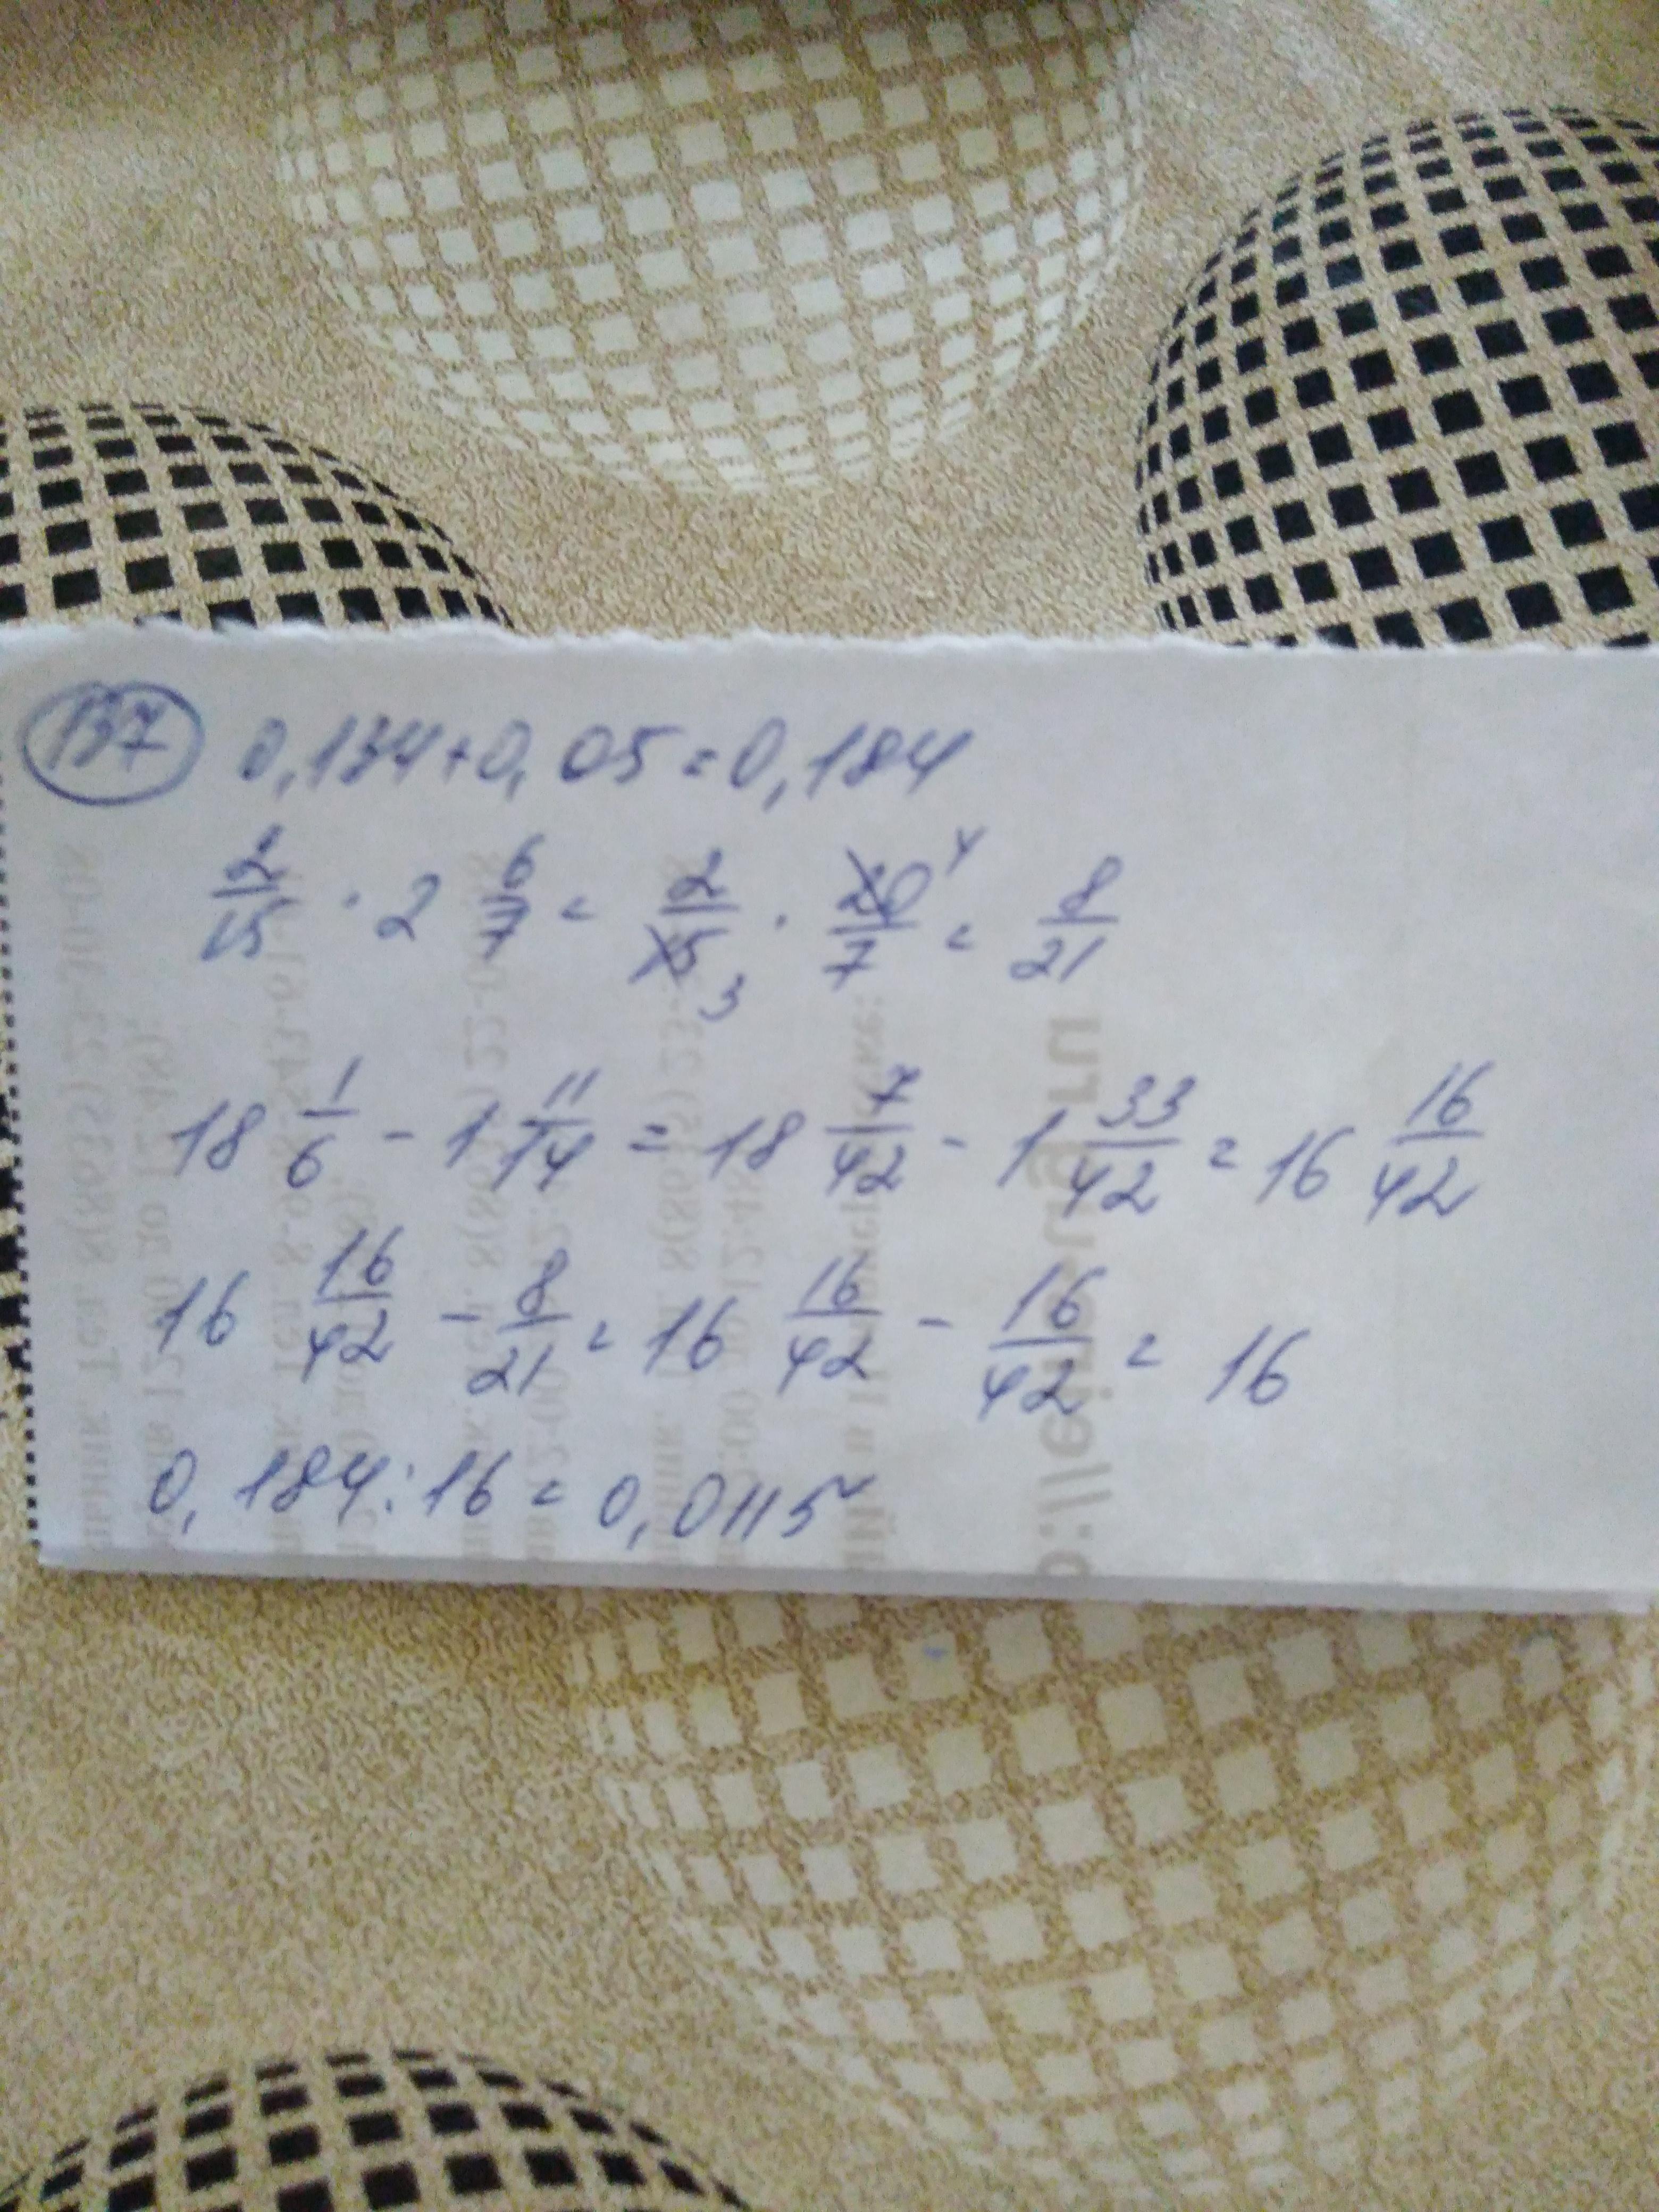 137 0,134+0,05=0,184
2/15 · 2 6/7 = 2/15 3 · 20/7 4 = 8/21
18 1/6 - 1 11/14 = 18 7/42 - 1 33/42 = 16 16/42
16 16/42 - 8/21 = 16 16/42 - 16/42 = 16
0,184:16=0,0115